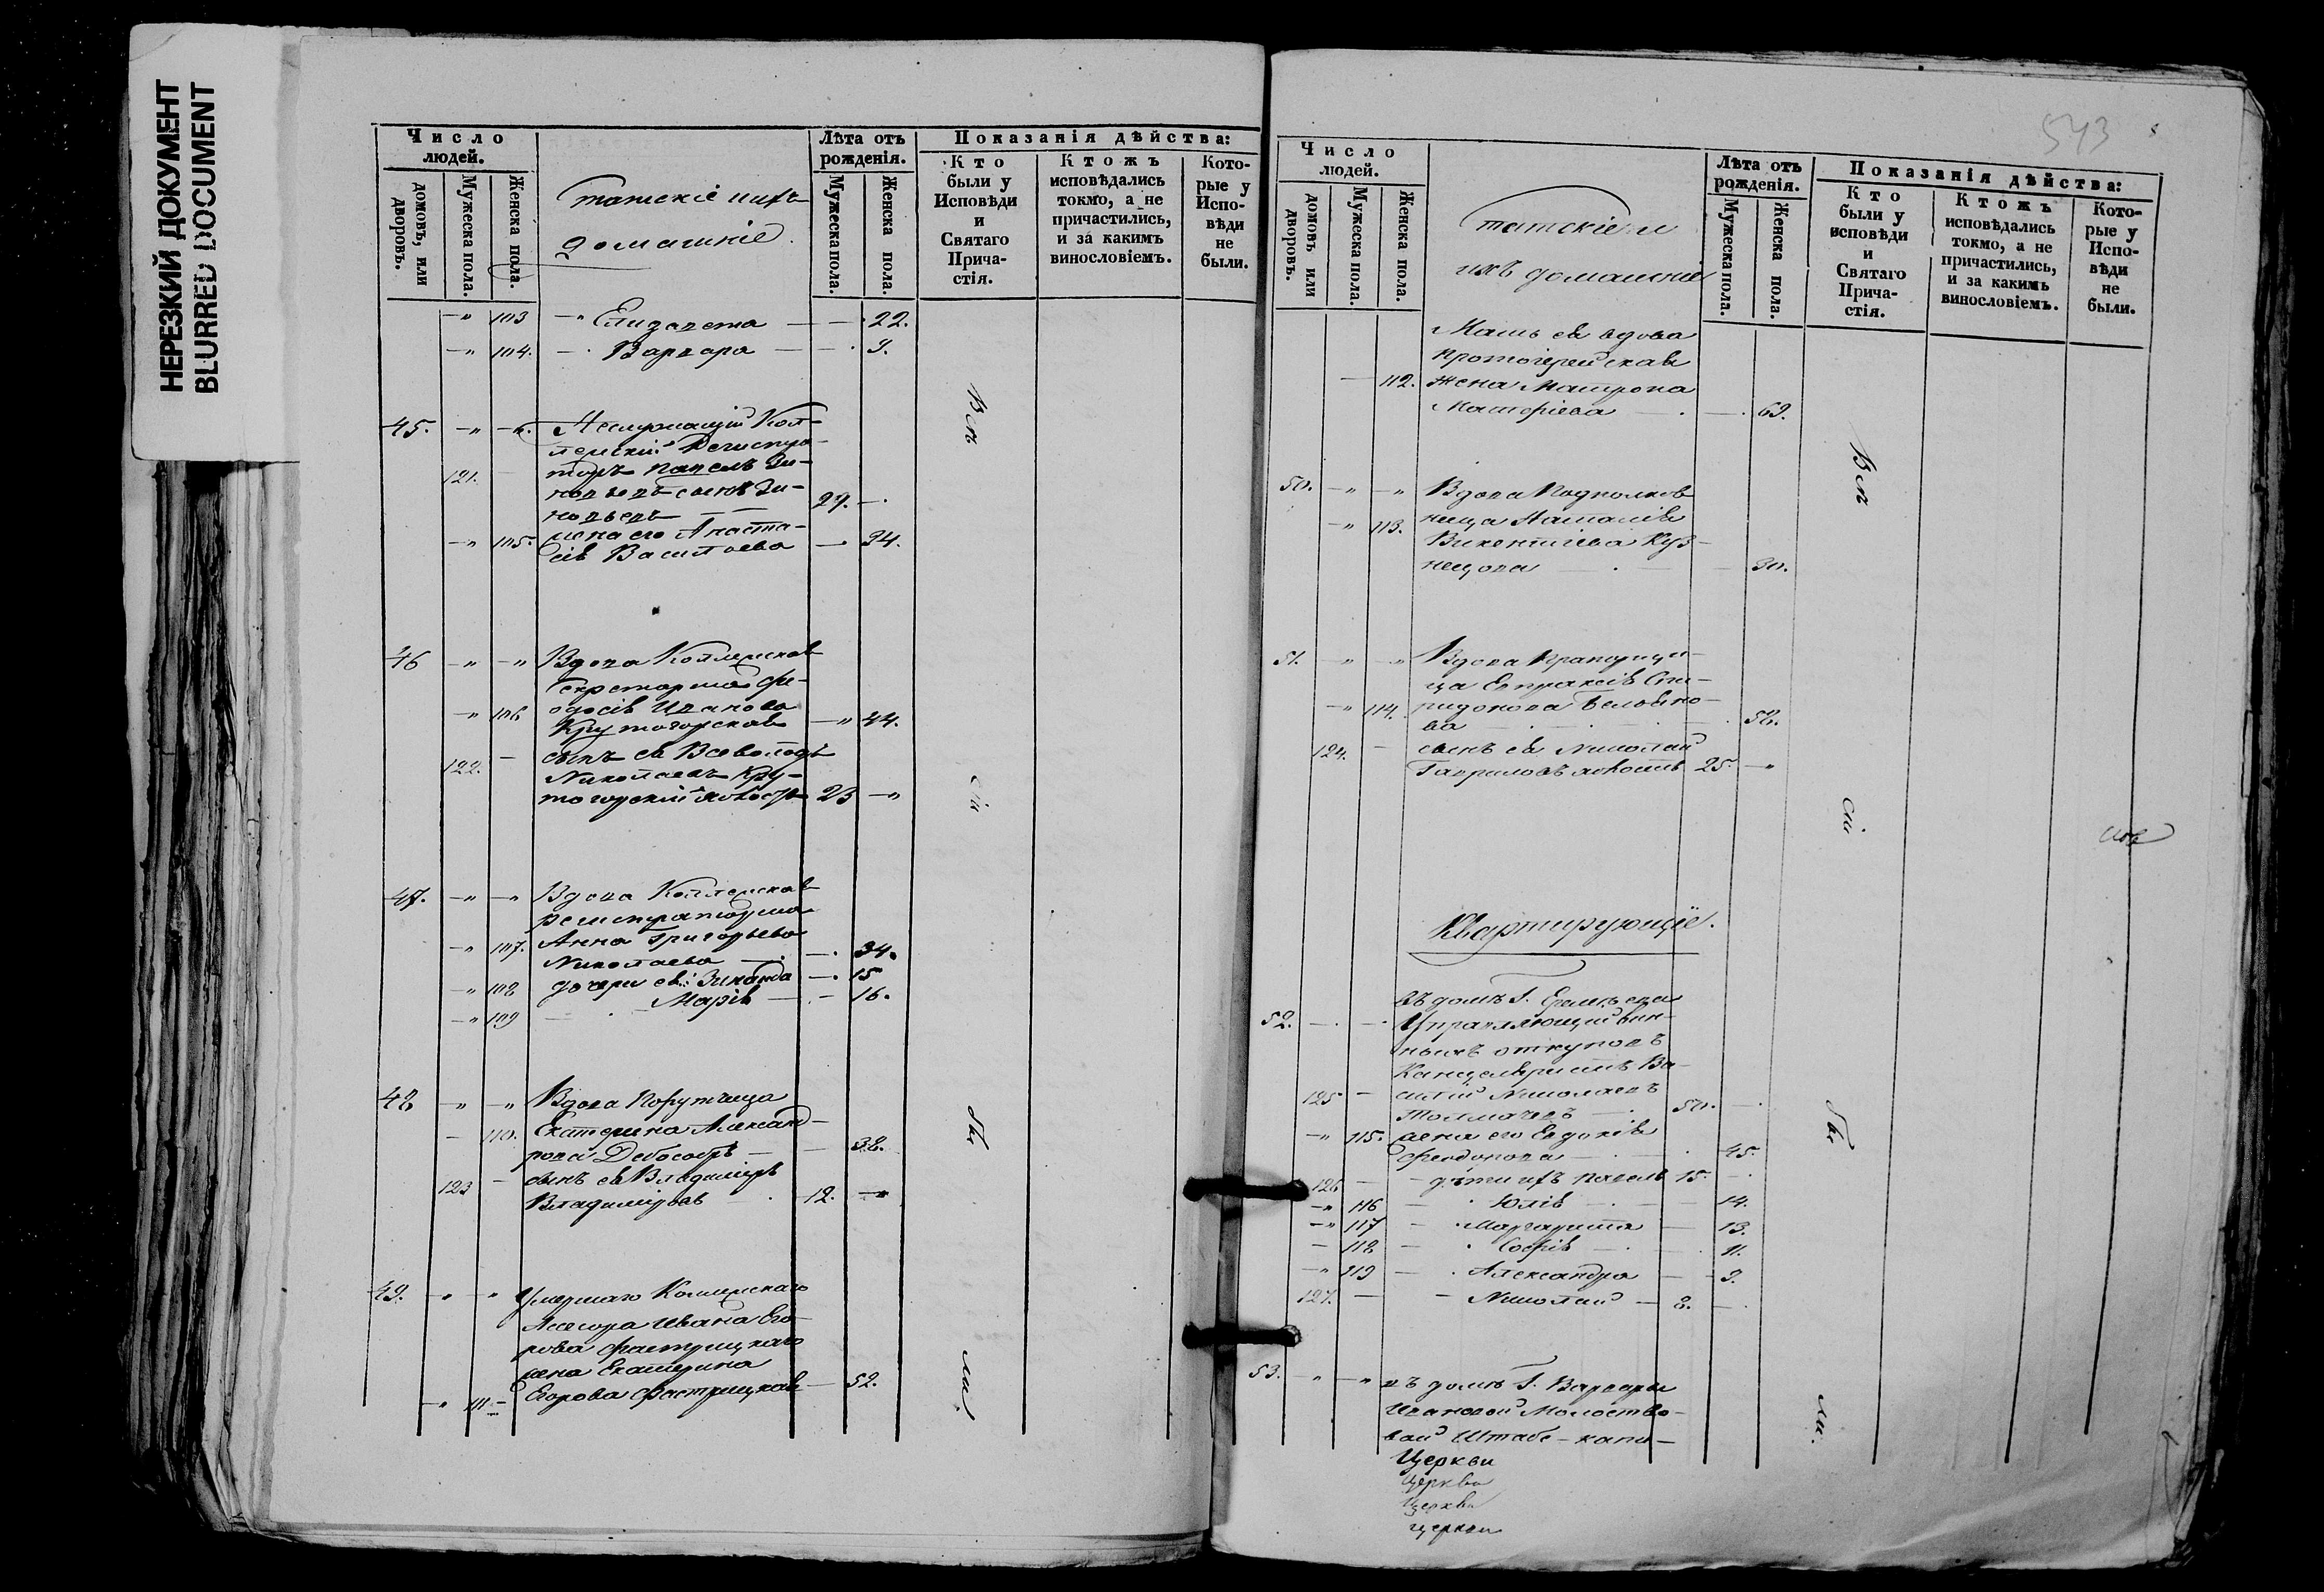 НЕРЕЗКИЙ ДОКУМЕНТ
BLURRED DOCUMENT
Число людей.
домовъ, или дворовъ.
Мужеска пола.
Женска пола.
Статскіе и ихъ
домашніе.
Лѣта отъ рожденія.
Мужеска пола.
Женска пола.
Показанія дѣйства:
Кто были у Исповѣди и Святаго Причастія.
Ктожъ исповѣдались токмо, а не причастились, и за какимъ винословіемъ.
Которые у Исповѣди не были.
103 Елизавета 22.
104. Варвара 9.
45. Неслужащій Кол-
лежскій Регистра-
121. торъ Павелъ Зи-
новьевъ сынъ Зи-
новьевъ 29.
105. жена его Анаста-
сія Васильева 34.
46 Вдова Коллежская
Секретарша Фе-
106 одосія Иванова
Крутогорская 44.
122. сынъ ея Всеволодъ
Николаевъ Кру-
тогорскій холостъ 23
47. Вдова Коллежская
регистраторша
107. Анна Григорьева
Николаева 34.
108 дочери ея: Зинаида 15
109 Марія 16.
48 Вдова Поручица
110. Екатерина Александ-
рова 38.
123 сынъ ея Владиміръ
Владиміровъ 12.
49. Умершаго Коллежскаго
Асесора Ивана Его-
рова
жена Екатерина
111 Егорова 52.
Всѣ
сіи
бы
ли.
543
Число людей.
домовъ или дворовъ.
Мужеска пола.
Женска пола.
Статскіе и
ихъ домашніе
Лѣта отъ рожденія.
Мужеска пола.
Женска пола.
Показанія дѣйства:
Кто были у исповѣди и Святаго Причастія.
Ктожъ исповѣдались токмо, а не причастились, и за какимъ винословіемъ.
Которые у Исповѣди не были.
Мать ея вдова
протоіерейская
112. жена Матрона
Матфіева 69.
50. Вдова Подполков-
113. ница Наталія
Викентіева Куз-
нецова 30.
51. Вдова Прапорщи-
ца Евпраксія Спи-
114. ридонова
ва 58.
124. сынъ ея Николай
Гавриловъ холостъ 25.
Квартирующіе.
въ домѣ Г.
52. Управляющій вин-
ныхъ откуповъ
Канцеляристъ Ва-
125 силій Николаевъ
Толмачевъ 50.
115. жена его Евдокія
45.
126 дѣти ихъ Павелъ 15.
116 Юлія 14.
117 Маргарита 13.
118 Софія 11.
119 Александра 9.
127. Николай 8.
53. въ домѣ Г. Варвары
Ивановой Молоство-
вой Штабс-капи-
Церкви
Церкви
Церкви
Церкви
Всѣ
сіи
бы
ли.